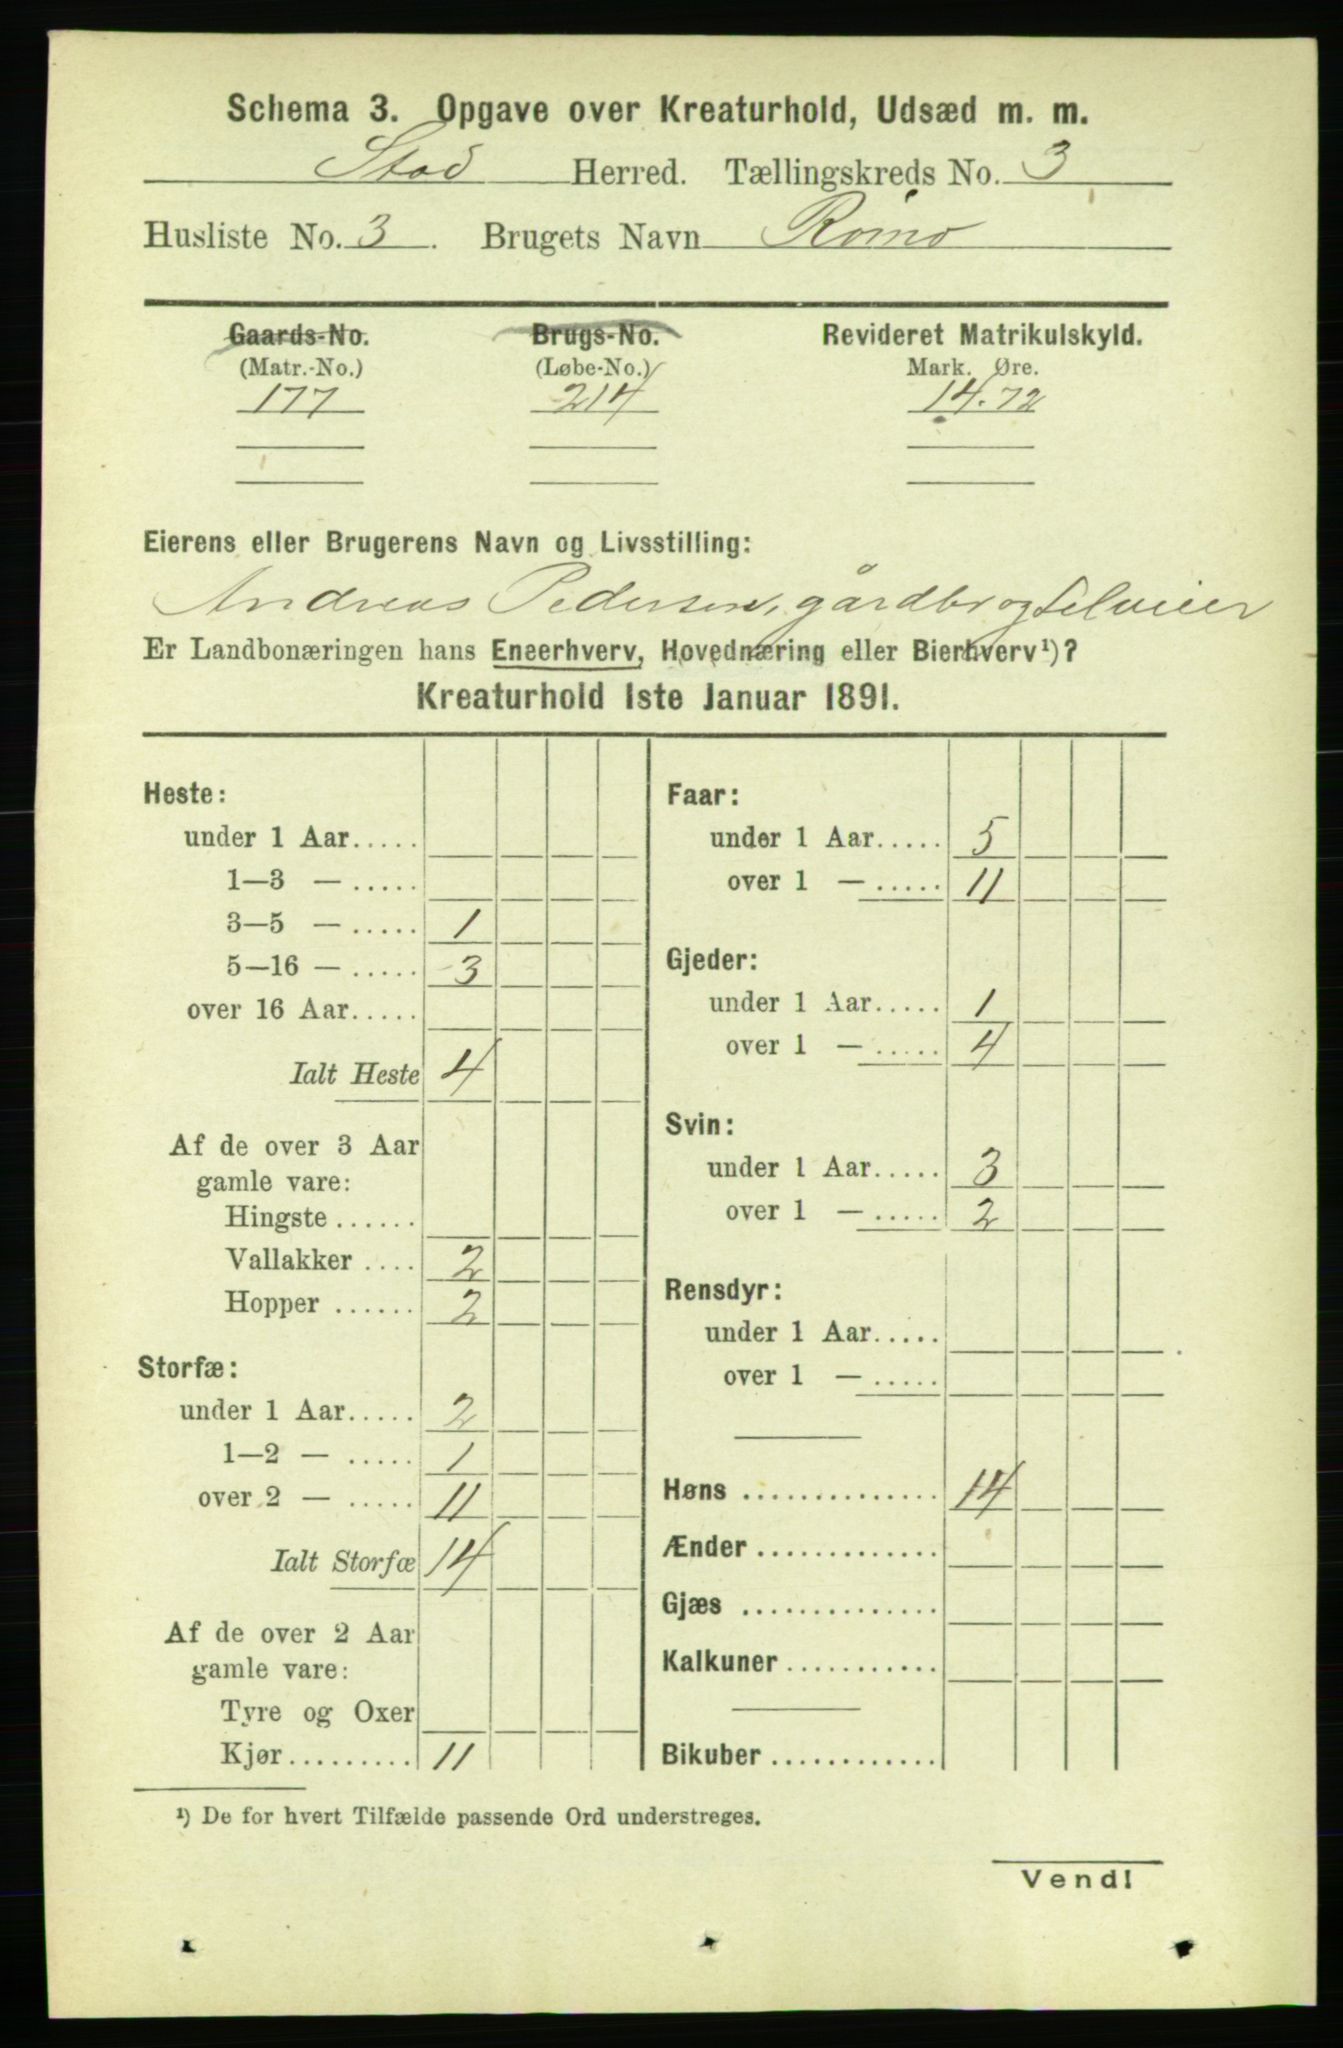 Schema 3. Opgave over Kreaturhold, Udsæd m. m.
Stod Herred. Tællingskreds No. 3
Husliste No. 3. Brugets Navn Rømo
Gaards-No. Brugs-No. Revideret Matrikulskyld.
(Matr.-No.) (Løbe-No.) Mark. Øre.
177 214 14.72
Eierens eller Brugerens Navn og Livsstilling:
Andreas Pedersen, gårdbr og selveier
Er Landbonæringen hans Eneerhverv, Hovednæring eller Bierhverv¹)?
Kreaturhold 1ste Januar 1891.
Heste:
under 1 Aar.....
1—3 — .....
3—5 — ..... 1
5—16 — ..... 3
over 16 Aar.....
Ialt Heste 4
Af de over 3 Aar
gamle vare:
Hingste ......
Vallakker .... 2
Hopper ...... 2
Storfæ:
under 1 Aar..... 2
1—2 — ..... 1
over 2 — ..... 11
Ialt Storfæ 14
Af de over 2 Aar
gamle vare:
Tyre og Oxer
Kjør......... 11
Faar:
under 1 Aar..... 5
over 1 — ..... 11
Gjeder:
under 1 Aar..... 1
over 1 — ..... 4
Svin:
under 1 Aar..... 3
over 1 — ..... 2
Rensdyr:
under 1 Aar.....
over 1 — .....
Høns .............. 14
Ænder .............
Gjæs ..............
Kalkuner...........
Bikuber ............
¹) De for hvert Tilfælde passende Ord understreges.
Vend!